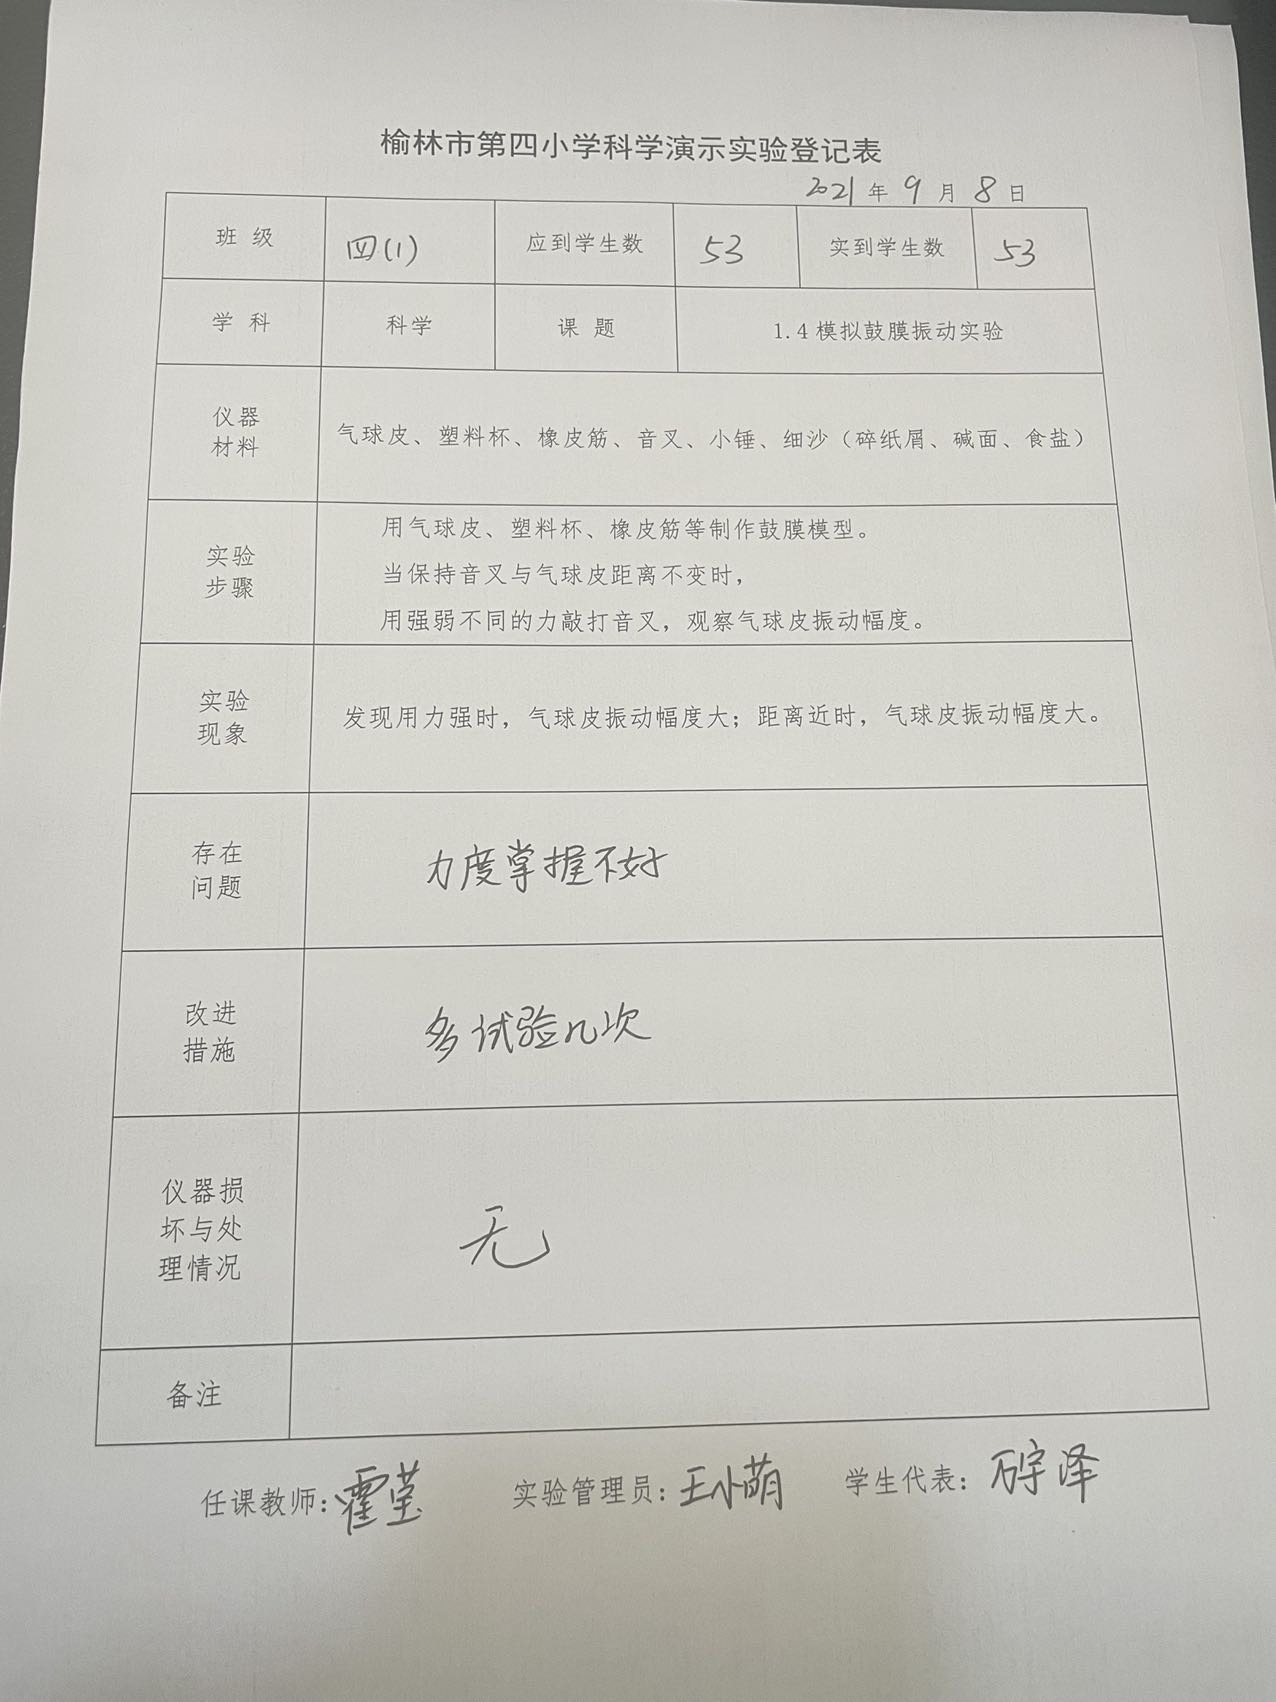 榆林市第四小学科学演示实验登记表
2021年9月8日
班级 四(1) 应到学生数 53 实到学生数 53
学科 科学 课题 1.4模拟鼓膜振动实验
仪器
材料
气球皮、塑料杯、橡皮筋、音叉、小锤、细沙（碎纸屑、碱面、食盐）
实验
步骤
用气球皮、塑料杯、橡皮筋等制作鼓膜模型。
当保持音叉与气球皮距离不变时，
用强弱不同的力敲打音叉，观察气球皮振动幅度。
实验
现象
发现用力强时，气球皮振动幅度大；距离近时，气球皮振动幅度大。
存在
问题
力度掌握不好
改进
措施
多试验几次
仪器损
坏与处
理情况
无
备注
任课教师：霍莹 实验管理员：王小萌 学生代表：万宇泽